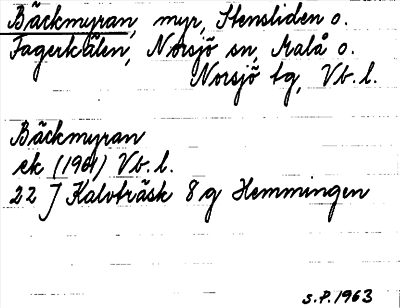 Bäckmyran, myr, Stensliden o.
Fagerkälen, Norsjö sn, Malå o.
Norsjö tg, Vb. l.
Bäckmyran
ek (1961) Vb. l.
22 J Kalvträsk 8 g Hemmingen
S.P. 1963